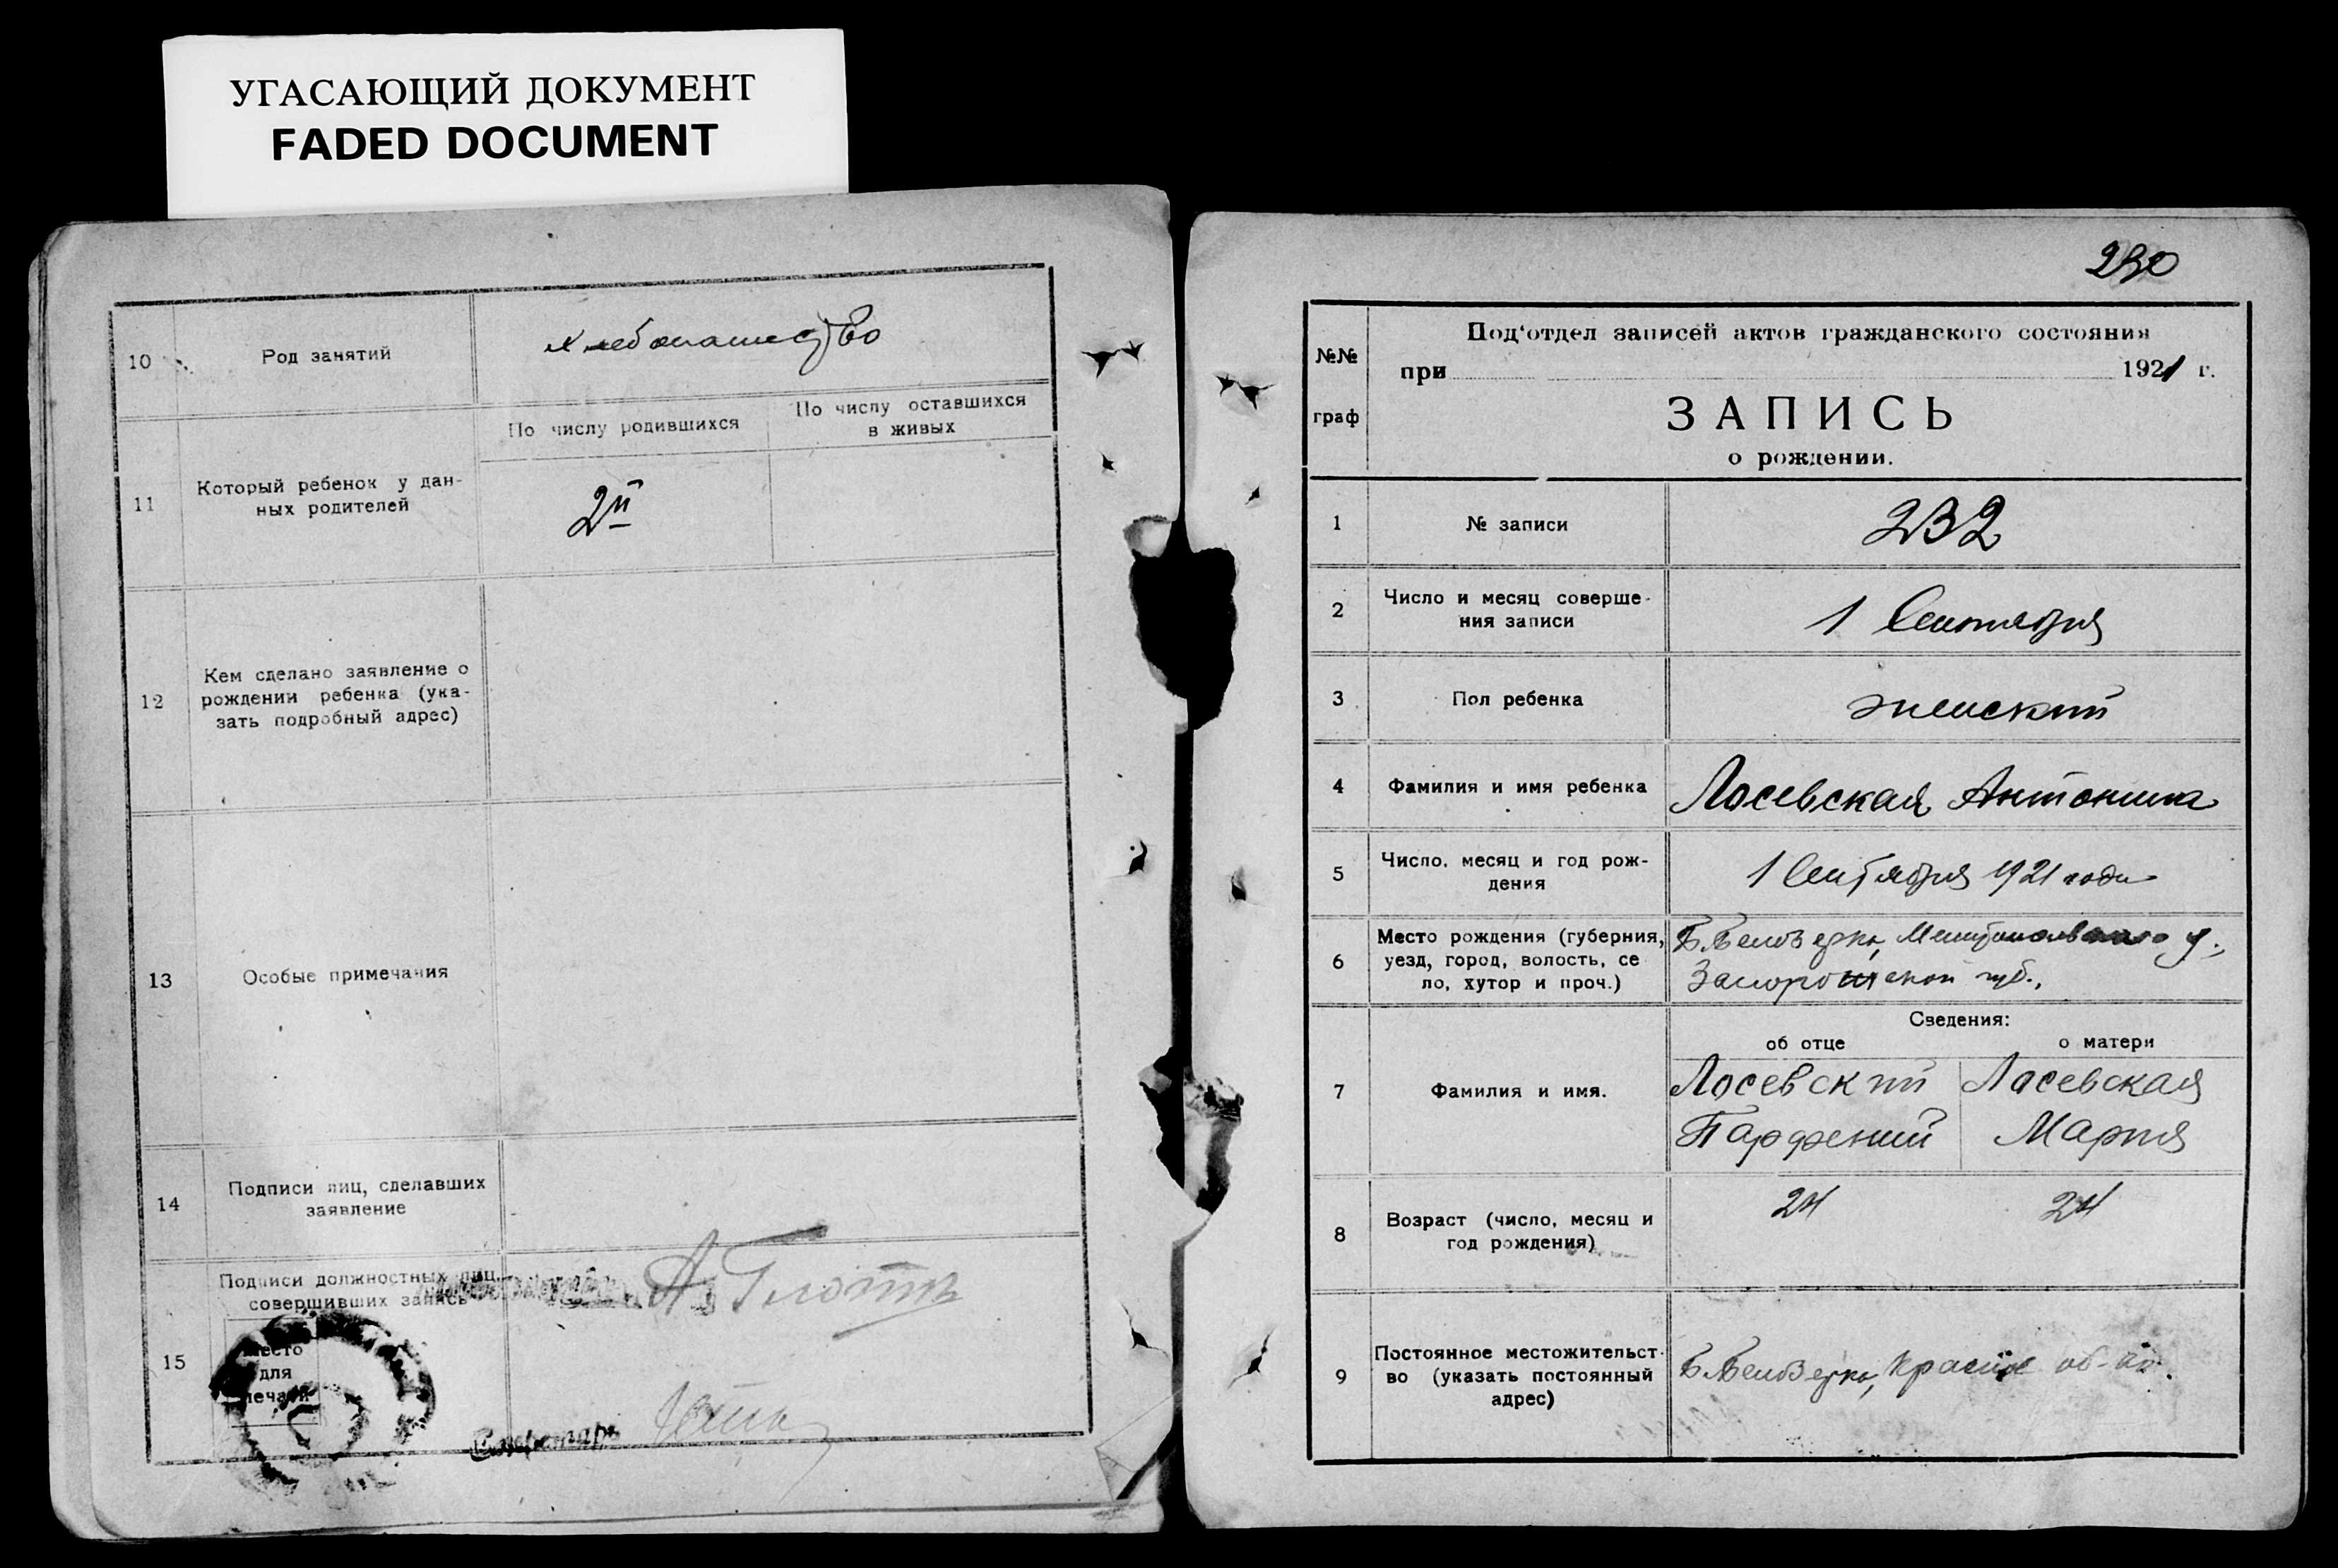 УГАСАЮЩИЙ ДОКУМЕНТ
FADED DOCUMENT
10
Род занятий
хлебопашество
11
Который ребенок у дан-
ных родителей
По числу родившихся
По числу оставшихся
в живых
2й
12
Кем сделано заявление о
рождении ребенка (ука-
зать подробный адрес)
13
Особые примечания
14
Подписи лиц, сделавших
заявление
15
Подписи должностных лиц,
совершивших запись
Место
для
печати
Секретарь
230
№№
граф
Под'отдел записей актов гражданского состояния
при 1921 г.
ЗАПИСЬ
о рождении.
1
№ записи
232
2
Число и месяц соверше-
ния записи
1 Сентября
3
Пол ребенка
женский
4
Фамилия и имя ребенка
Лосевская Антонина
5
Число, месяц и год рож-
дения
1 Сентября 1921 года
6
Место рождения (губерния,
уезд, город, волость, се
ло, хутор и проч.)
Б. Белозерка, Мелитопольского у.,
Запорожской губ.,
Сведения:
об отце
о матери
7
Фамилия и имя.
Лосевский
Парфений
Лосевская
Мария
8
Возраст (число, месяц и
год рождения)
24
24
9
Постоянное местожительст-
во (указать постоянный
адрес)
Б. Белозерка, Красное об-во.